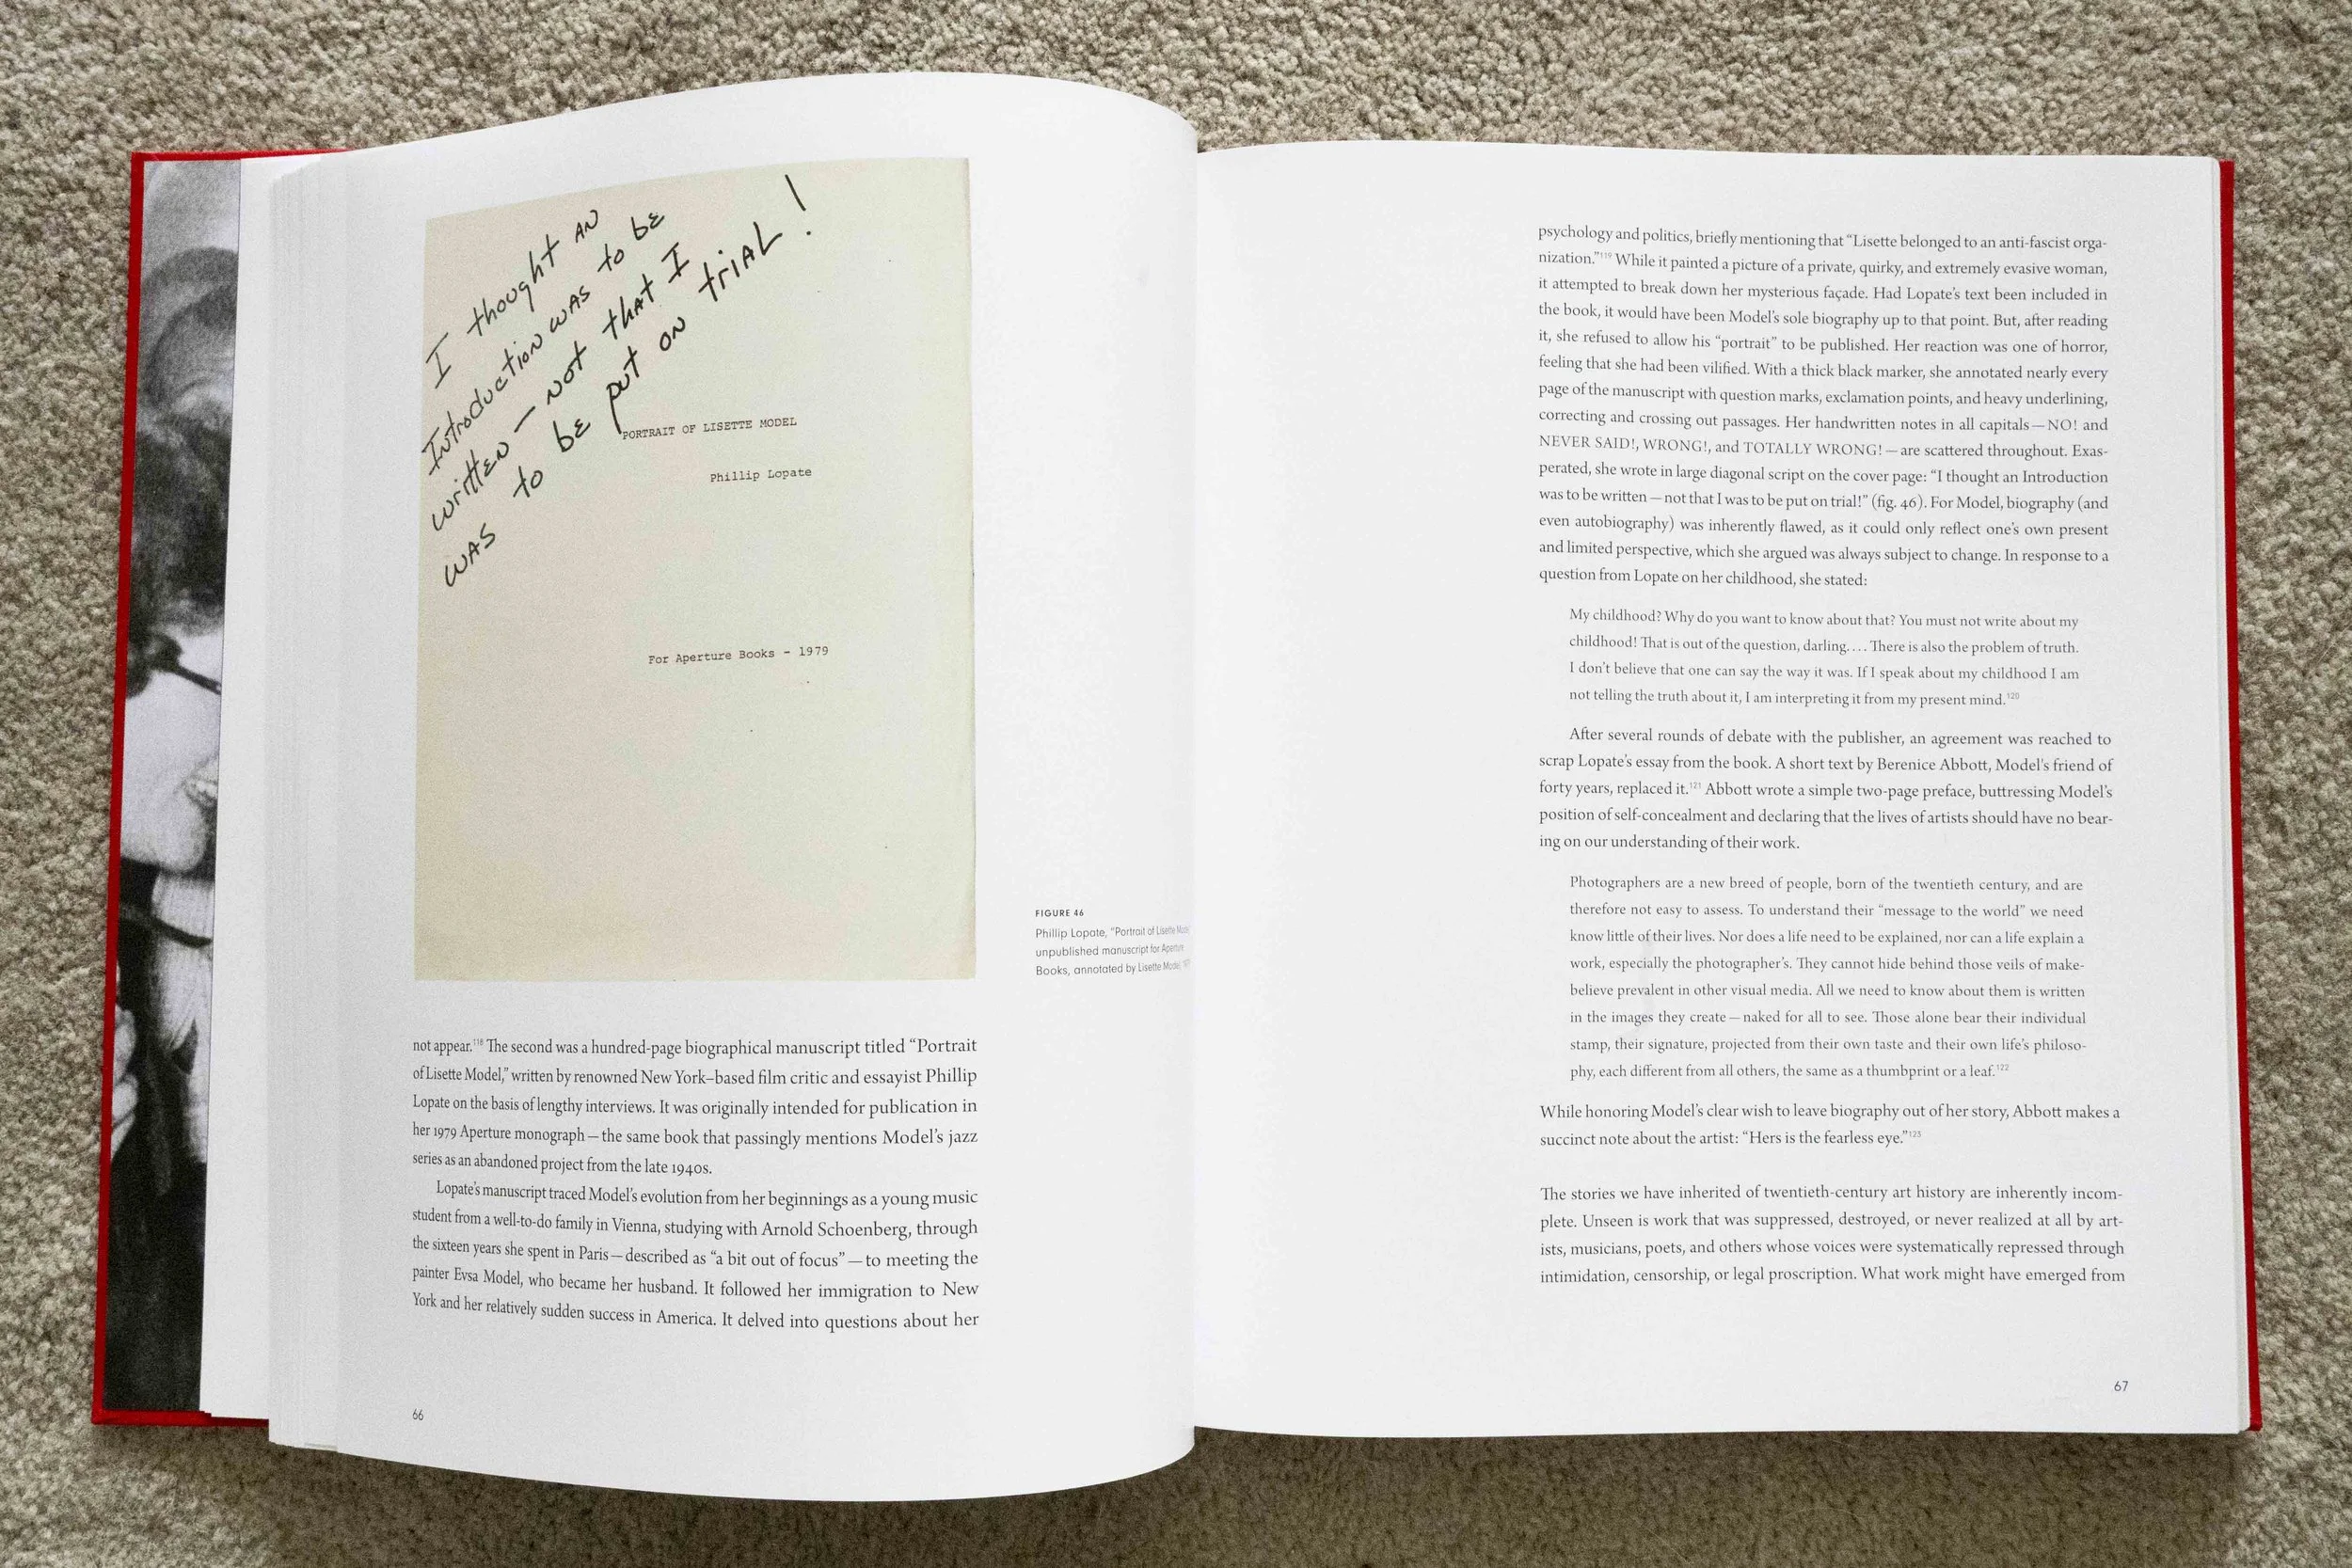 I thought AN
Introduction was to be
written — not that I
was to be put on triAL!
PORTRAIT OF LISETTE MODEL
Phillip Lopate
For Aperture Books - 1979
FIGURE 46
Phillip Lopate, “Portrait of Lisette Model,”
unpublished manuscript for Aperture
Books, annotated by Lisette Model,
not appear.¹¹⁸ The second was a hundred-page biographical manuscript titled “Portrait
of Lisette Model,” written by renowned New York–based film critic and essayist Phillip
Lopate on the basis of lengthy interviews. It was originally intended for publication in
her 1979 Aperture monograph — the same book that passingly mentions Model’s jazz
series as an abandoned project from the late 1940s.
Lopate’s manuscript traced Model’s evolution from her beginnings as a young music
student from a well-to-do family in Vienna, studying with Arnold Schoenberg, through
the sixteen years she spent in Paris — described as “a bit out of focus” — to meeting the
painter Evsa Model, who became her husband. It followed her immigration to New
York and her relatively sudden success in America. It delved into questions about her
66
psychology and politics, briefly mentioning that “Lisette belonged to an anti-fascist orga-
nization.”¹¹⁹ While it painted a picture of a private, quirky, and extremely evasive woman,
it attempted to break down her mysterious façade. Had Lopate’s text been included in
the book, it would have been Model’s sole biography up to that point. But, after reading
it, she refused to allow his “portrait” to be published. Her reaction was one of horror,
feeling that she had been vilified. With a thick black marker, she annotated nearly every
page of the manuscript with question marks, exclamation points, and heavy underlining,
correcting and crossing out passages. Her handwritten notes in all capitals — NO! and
NEVER SAID!, WRONG!, and TOTALLY WRONG! — are scattered throughout. Exas-
perated, she wrote in large diagonal script on the cover page: “I thought an Introduction
was to be written — not that I was to be put on trial!” (fig. 46). For Model, biography (and
even autobiography) was inherently flawed, as it could only reflect one’s own present
and limited perspective, which she argued was always subject to change. In response to a
question from Lopate on her childhood, she stated:
My childhood? Why do you want to know about that? You must not write about my
childhood! That is out of the question, darling. . . . There is also the problem of truth.
I don’t believe that one can say the way it was. If I speak about my childhood I am
not telling the truth about it, I am interpreting it from my present mind.¹²⁰
After several rounds of debate with the publisher, an agreement was reached to
scrap Lopate’s essay from the book. A short text by Berenice Abbott, Model’s friend of
forty years, replaced it.¹²¹ Abbott wrote a simple two-page preface, buttressing Model’s
position of self-concealment and declaring that the lives of artists should have no bear-
ing on our understanding of their work.
Photographers are a new breed of people, born of the twentieth century, and are
therefore not easy to assess. To understand their “message to the world” we need
know little of their lives. Nor does a life need to be explained, nor can a life explain a
work, especially the photographer’s. They cannot hide behind those veils of make-
believe prevalent in other visual media. All we need to know about them is written
in the images they create — naked for all to see. Those alone bear their individual
stamp, their signature, projected from their own taste and their own life’s philoso-
phy, each different from all others, the same as a thumbprint or a leaf.¹²²
While honoring Model’s clear wish to leave biography out of her story, Abbott makes a
succinct note about the artist: “Hers is the fearless eye.”¹²³
The stories we have inherited of twentieth-century art history are inherently incom-
plete. Unseen is work that was suppressed, destroyed, or never realized at all by art-
ists, musicians, poets, and others whose voices were systematically repressed through
intimidation, censorship, or legal proscription. What work might have emerged from
67